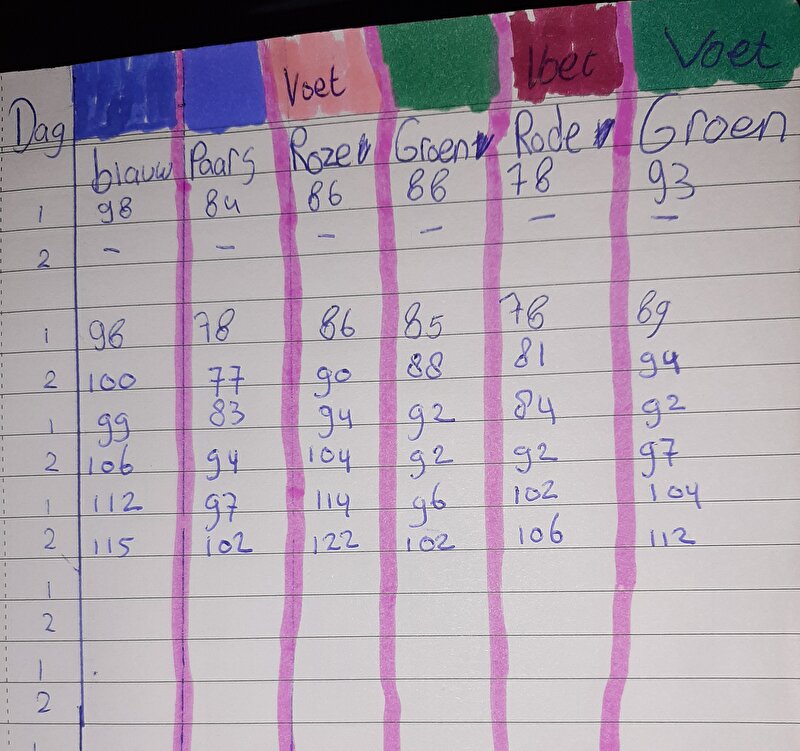 Voet Voet Voet
Dag blauw Paars Roze Groen Rode Groen
1 98 84 86 88 78 93
2 - - - - - -
1 98 78 86 85 78 89
2 100 77 90 88 81 94
1 99 83 94 92 84 92
2 106 94 104 92 92 97
1 112 97 114 96 102 104
2 115 102 122 102 106 112
1
2
1
2